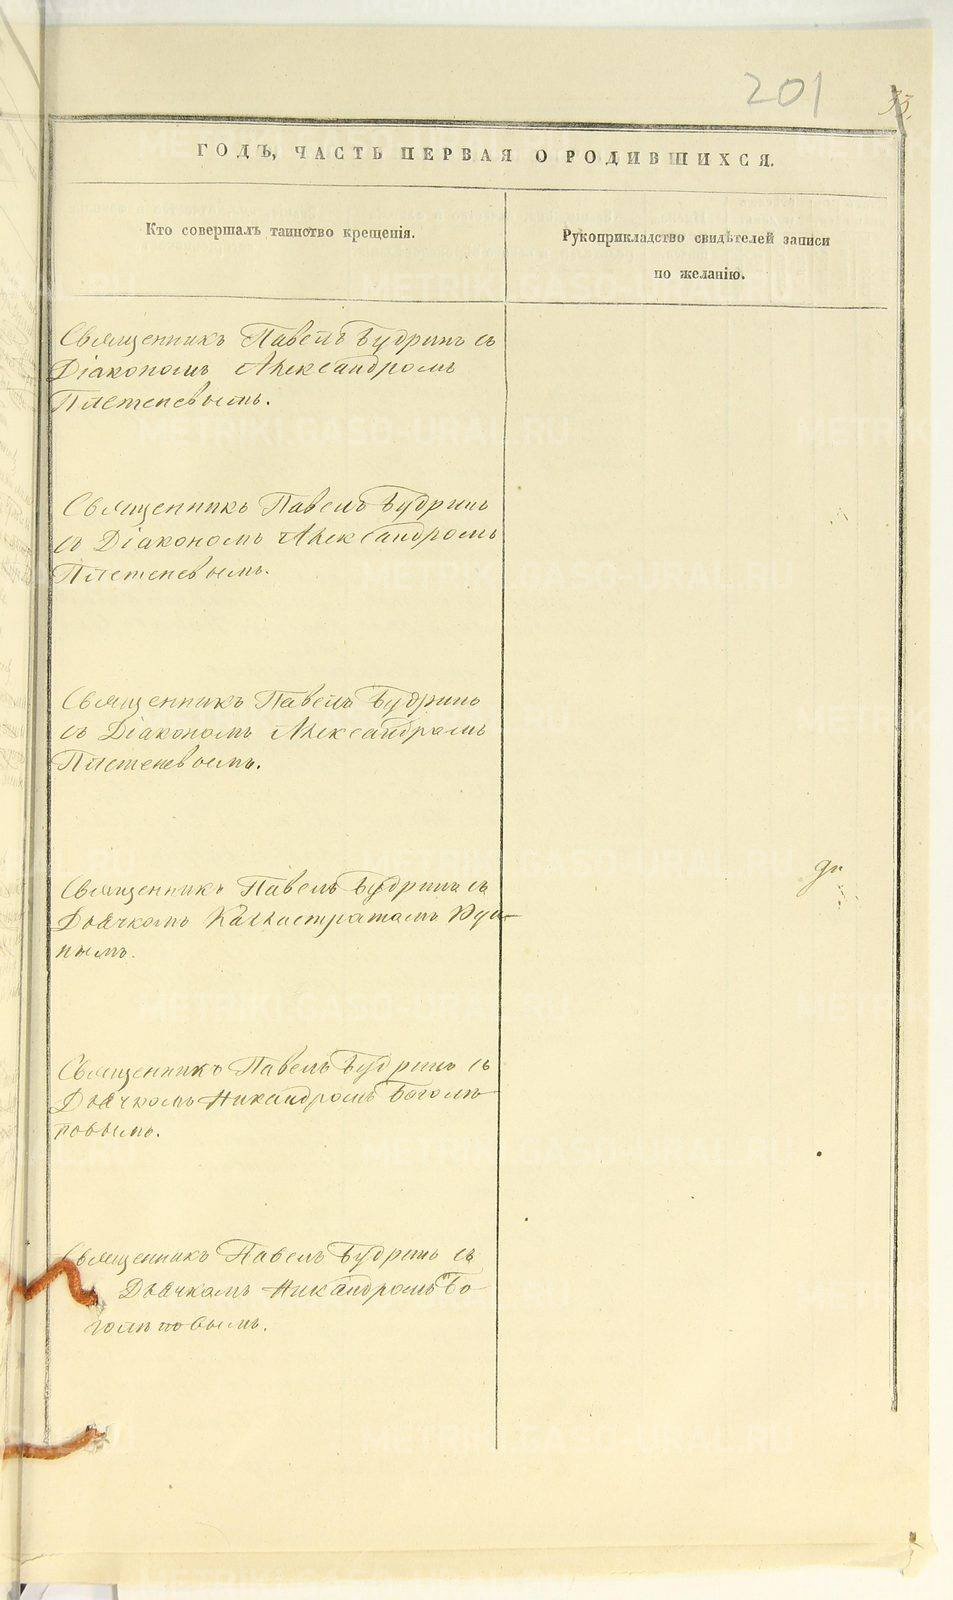 201
ГОДЪ, ЧАСТЬ ПЕРВАЯ О РОДИВШИХСЯ.
Кто совершалъ таинство крещенія.
Рукоприкладство свидѣтелей записи
по желанію.
Священникъ Павелъ Будринъ съ
Діакономъ Александромъ
Плетеневымъ.
Священникъ Павелъ Будринъ
съ Діакономъ Александромъ
Плетеневымъ.
Священникъ Павелъ Будринъ
съ Діакономъ Александромъ
Плетеневымъ.
Священникъ Павелъ Будринъ съ
Дьячкомъ Каллистратомъ
нымъ.
Священникъ Павелъ Будринъ съ
Дьячкомъ Никандромъ Боголѣ
повымъ.
Священникъ Павелъ Будринъ съ
Дьячкомъ Никандромъ Бо-
голѣповымъ.
METRIKI.GASO-URAL.RU